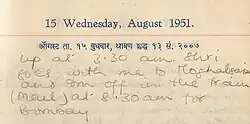 15 Wednesday, August 1951.
ऑगस्ट ता. १५ बुधवार, श्रावण शुद्ध १३ सं. २००७
up at 3.30 am. Shri
goes with me to Moghalsarai
and I'm off in the train
(Mail) at 8.30 am for
Bombay